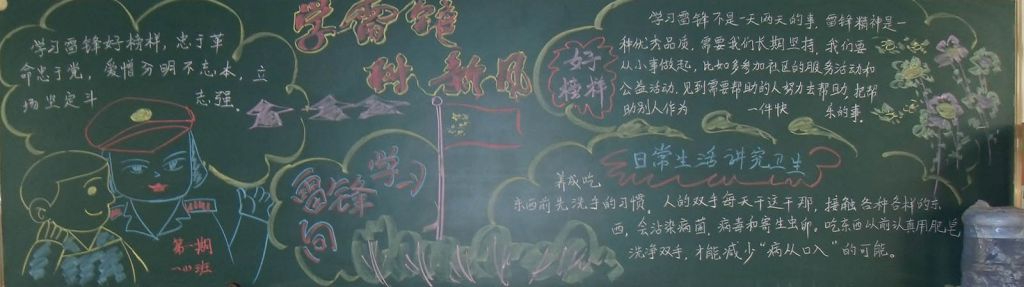 学习雷锋好榜样，忠于革
命忠于党，爱憎分明不忘本，立
场坚定斗 志强。
学雷锋
树新风
向雷锋学习
第一期
一(1)班
好榜样
学习雷锋不是一天两天的事，雷锋精神是一
种优秀品质，需要我们长期坚持，我们要
从小事做起，比如多参加社区的服务活动和
公益活动，见到需要帮助的人努力去帮助，把帮
助别人作为 一件快 乐的事。
日常生活讲究卫生
养成吃
东西前先洗手的习惯。人的双手每天干这干那，接触各种各样的东
西，会沾染病菌，病毒和寄生虫卵。吃东西以前认真用肥皂
洗净双手，才能减少“病从口入”的可能。